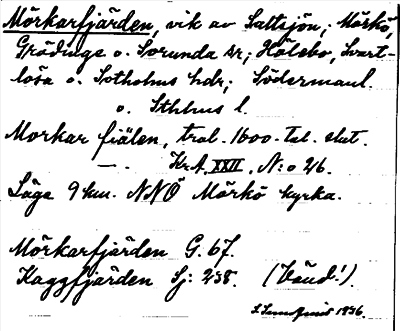 Mörkarfjärden, vik av Saltsjön; Mörkö,
Grödinge o. Sorunda sr; Hölebo, Svart-
lösa o. Sotholms hdr; Södermanl.
o. Sthlms l.
Morkar fiälen, trol. 1600-tal. slut.
—"— Kr.A. XXII, N:o 26.
Läge 9 km. NNÖ Mörkö kyrka.
Mörkarfjärden G. 67.
Kaggfjärden Sj: 238. (Vänd!).
1936.